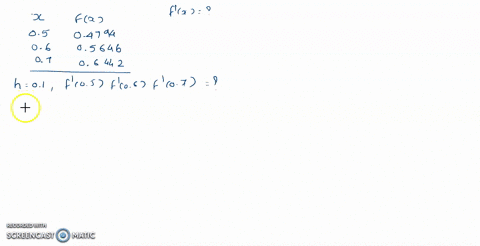 x f(x) f'(x) = ?
0.5 0.4794
0.6 0.5646
0.7 0.6442
h = 0.1, f'(0.5) f'(0.6) f'(0.7) = ?
RECORDED WITH
SCREENCAST MATIC